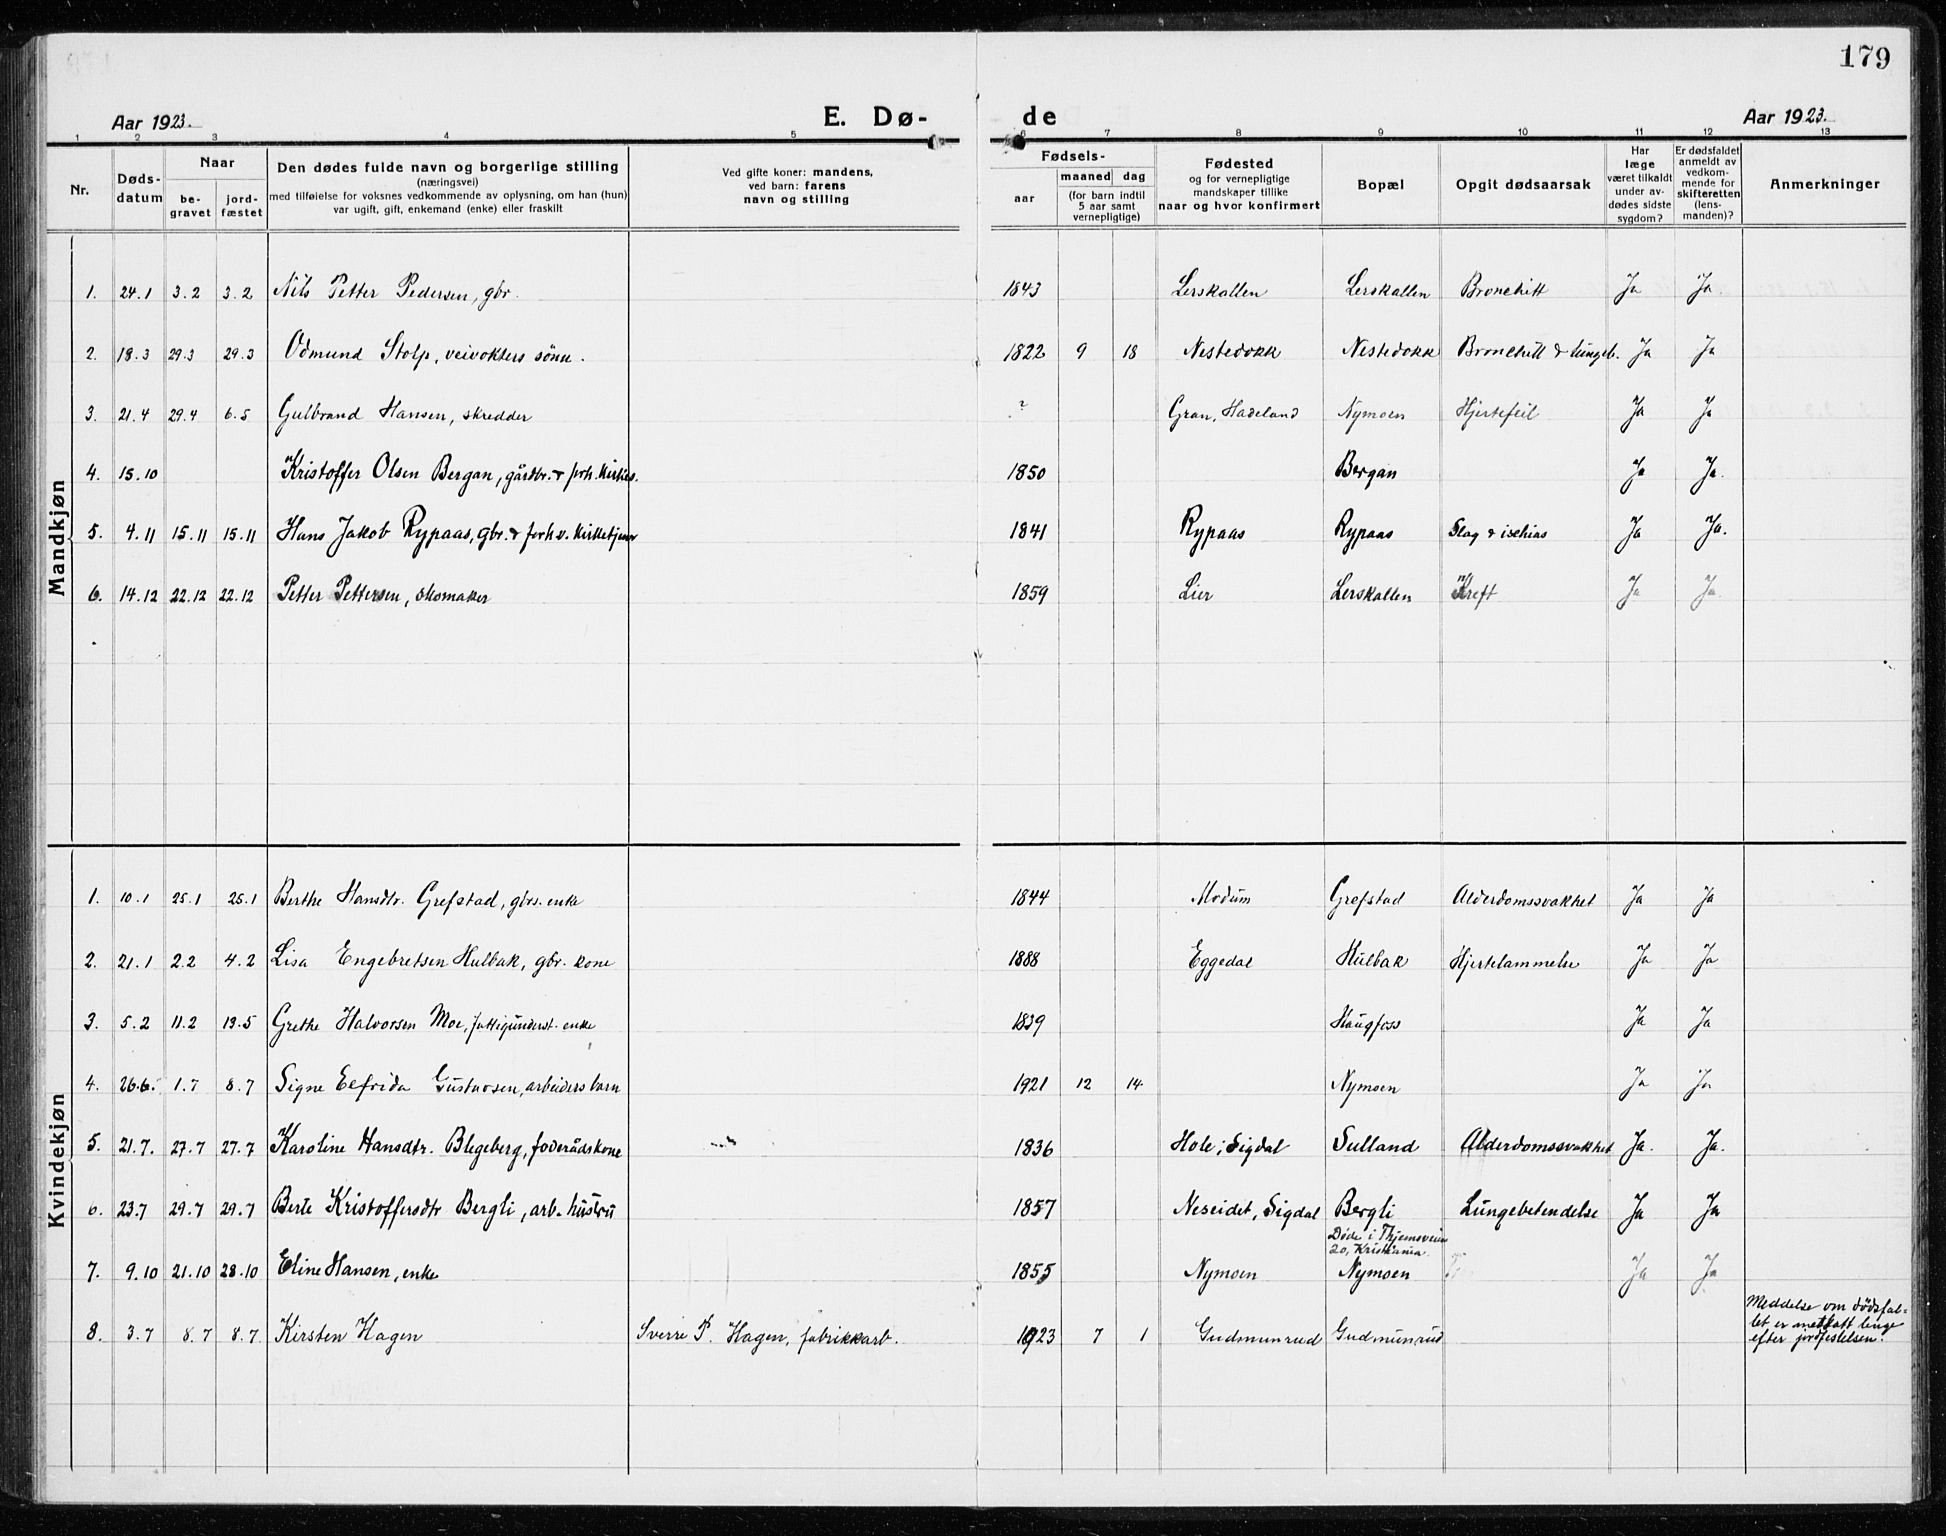 179
Aar 1923. E. Dø- de Aar 1923.
1 2 3 4 5 6 7 8 9 10 11 12 13
Nr.
Døds-
datum
Naar
be-
gravet
jord-
fæstet
Den dødes fulde navn og borgerlige stilling
(næringsvei)
med tilføielse for voksnes vedkommende av oplysning, om han (hun)
var ugift, gift, enkemand (enke) eller fraskilt
Ved gifte koner: mandens,
ved barn: farens
navn og stilling
Fødsels-
aar
maaned dag
(for barn indtil
5 aar samt
vernepligtige)
Fødested
og for vernepligtige
mandskaper tillike
naar og hvor konfirmert
Bopæl
Opgit dødsaarsak
Har
læge
været tilkaldt
under av-
dødes sidste
sygdom?
Er dødsfaldet
anmeldt av
vedkom-
mende for
skifteretten
(lens-
manden)?
Anmerkninger
Mandkjøn
1. 24.1 3.2 3.2 Nils Petter Pedersen, gbr. 1843 Lerskallen Lerskallen Bronchitt Ja Ja.
2. 18.3 29.3 29.3 Odmund Stolp, veivokters sönn. 1822 9 18 Nestedokk Nestedokk Bronchitt & lungeb. Ja Ja
3. 21.4 29.4 6.5 Gulbrand Hansen, skredder ? Gran, Hadeland Nymoen Hjertefeil Ja Ja
4. 15.10 Kristoffer Olsen Bergan, gårdbr. & forh. kirkes. 1850 Bergan Ja Ja.
5. 4.11 15.11 15.11 Hans Jakob Rypaas, gbr. & forhv. kirketjener 1841 Rypaas Rypaas Slag & ischias Ja Ja.
6. 14.12 22.12 22.12 Petter Pettersen, skomaker 1859 Lier Lerskallen Kreft Ja Ja.
Kvindekjøn
1. 10.1 25.1 25.1 Berthe Hansdtr. Grefstad, gbrs. enke 1844 Modum Grefstad Alderdomssvakhet Ja Ja
2. 21.1 2.2 4.2 Lisa Engebretsen Hulbak, gbr. kone 1888 Eggedal Hulbak Hjertelammelse Ja Ja
3. 5.2 11.2 13.5 Grethe Halvorsen Moe, fattigunderst. enke 1839 Haugfoss Ja Ja
4. 26.6. 1.7 8.7 Signe Elfrida Gustavsen, arbeiders barn 1921 12 14 Nymoen Ja Ja
5. 21.7. 27.7 27.7 Karoline Hansdtr. Blegeberg, foderådskone 1836 Hole, Sigdal Sulland Alderdomssvakhet Ja. Ja.
6. 23.7 29.7 29.7 Berte Kristoffersdtr Bergli, arb. hustru 1857 Neseidet, Sigdal Bergli Lungebetendelse Ja Ja
Döde i Thjemsveien
20, Kristiania.
7. 9.10 21.10 28.10 Eline Hansen, enke 1855 Nymoen Nymoen Ja Ja.
8. 3.7 8.7 8.7 Kirsten Hagen Sverre P. Hagen, fabrikkarb. 1923 7 1 Gudmunrud Gudmunrud
Meddelse om dödsfal-
let er mottatt lenge
efter jordfestelsen.